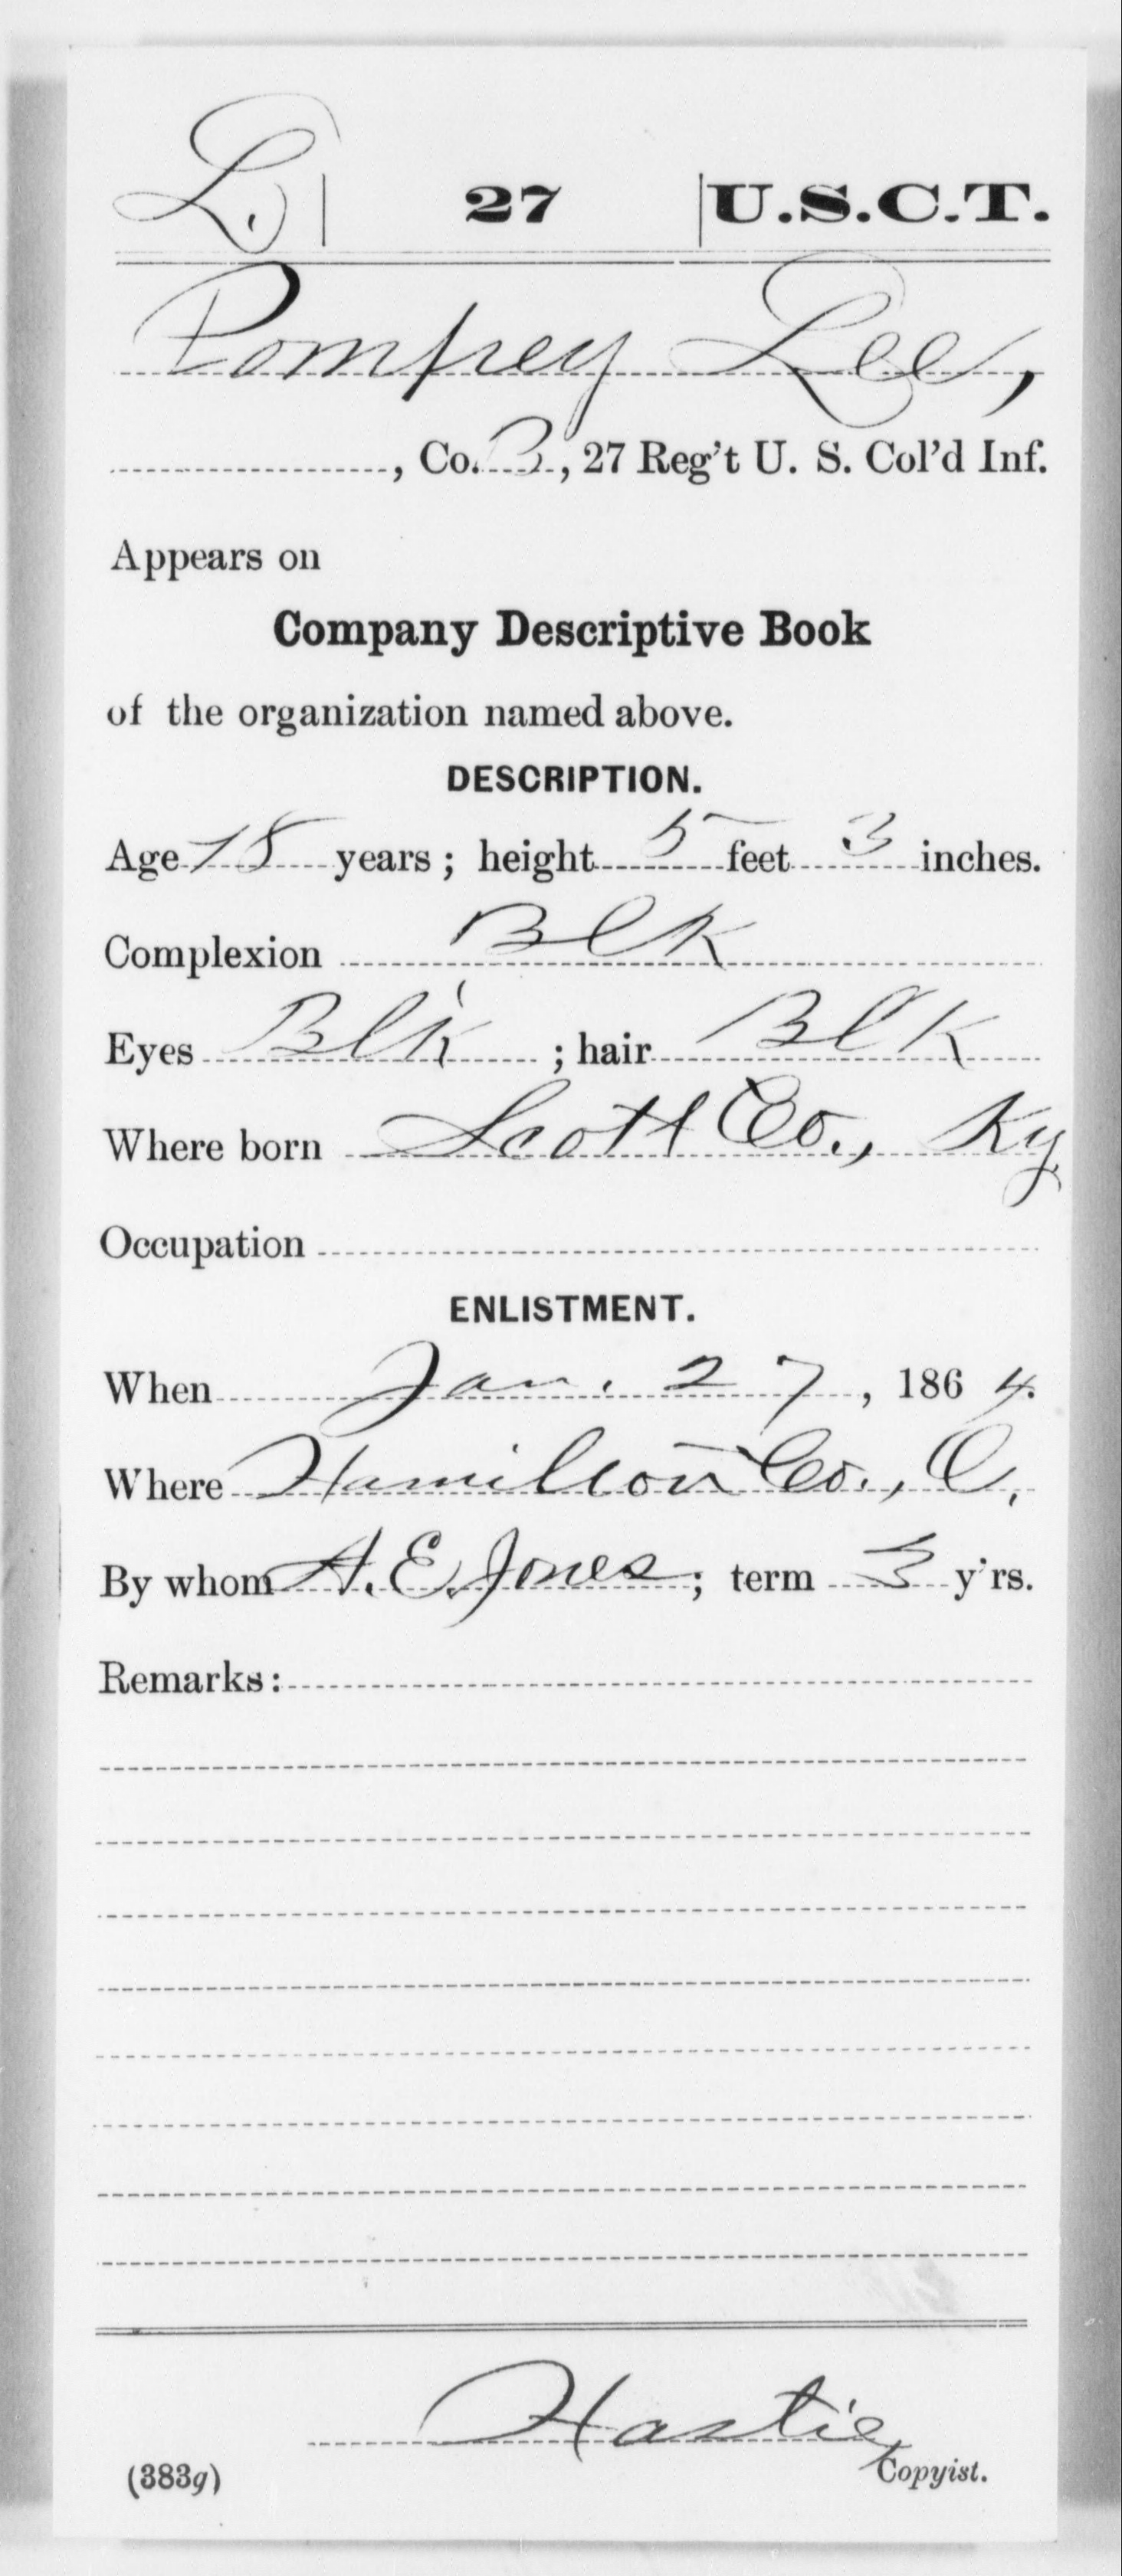 L. | 27 | U.S.C.T.
Pompey Lee,
, Co. B, 27 Reg't U. S. Col'd Inf.
Appears on
Company Descriptive Book
of the organization named above.
DESCRIPTION.
Age 18 years; height 5 feet 3 inches.
Complexion Blk
Eyes Blk; hair Blk
Where born Scott Co., Ky
Occupation
ENLISTMENT.
When Jan. 27, 1864.
Where Hamilton Co., O.
By whom A. E. Jones; term 3 y'rs.
Remarks:
Hastie
(383g) Copyist.